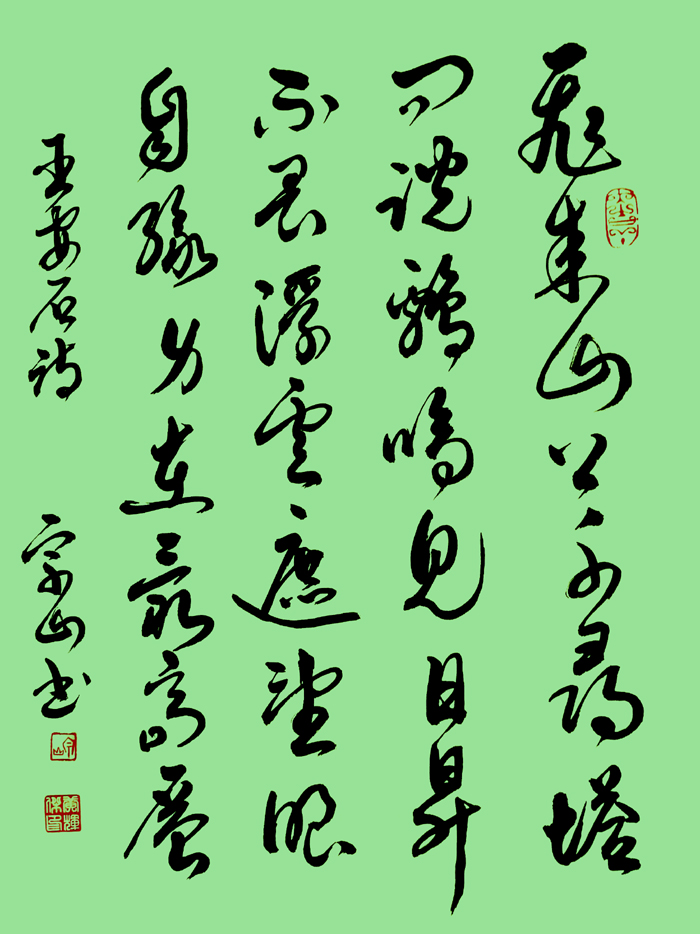 飛來山上千尋塔
聞說鷄鳴見日昇
不畏浮雲遮望眼
自緣身在最高層
王安石詩 宗山书